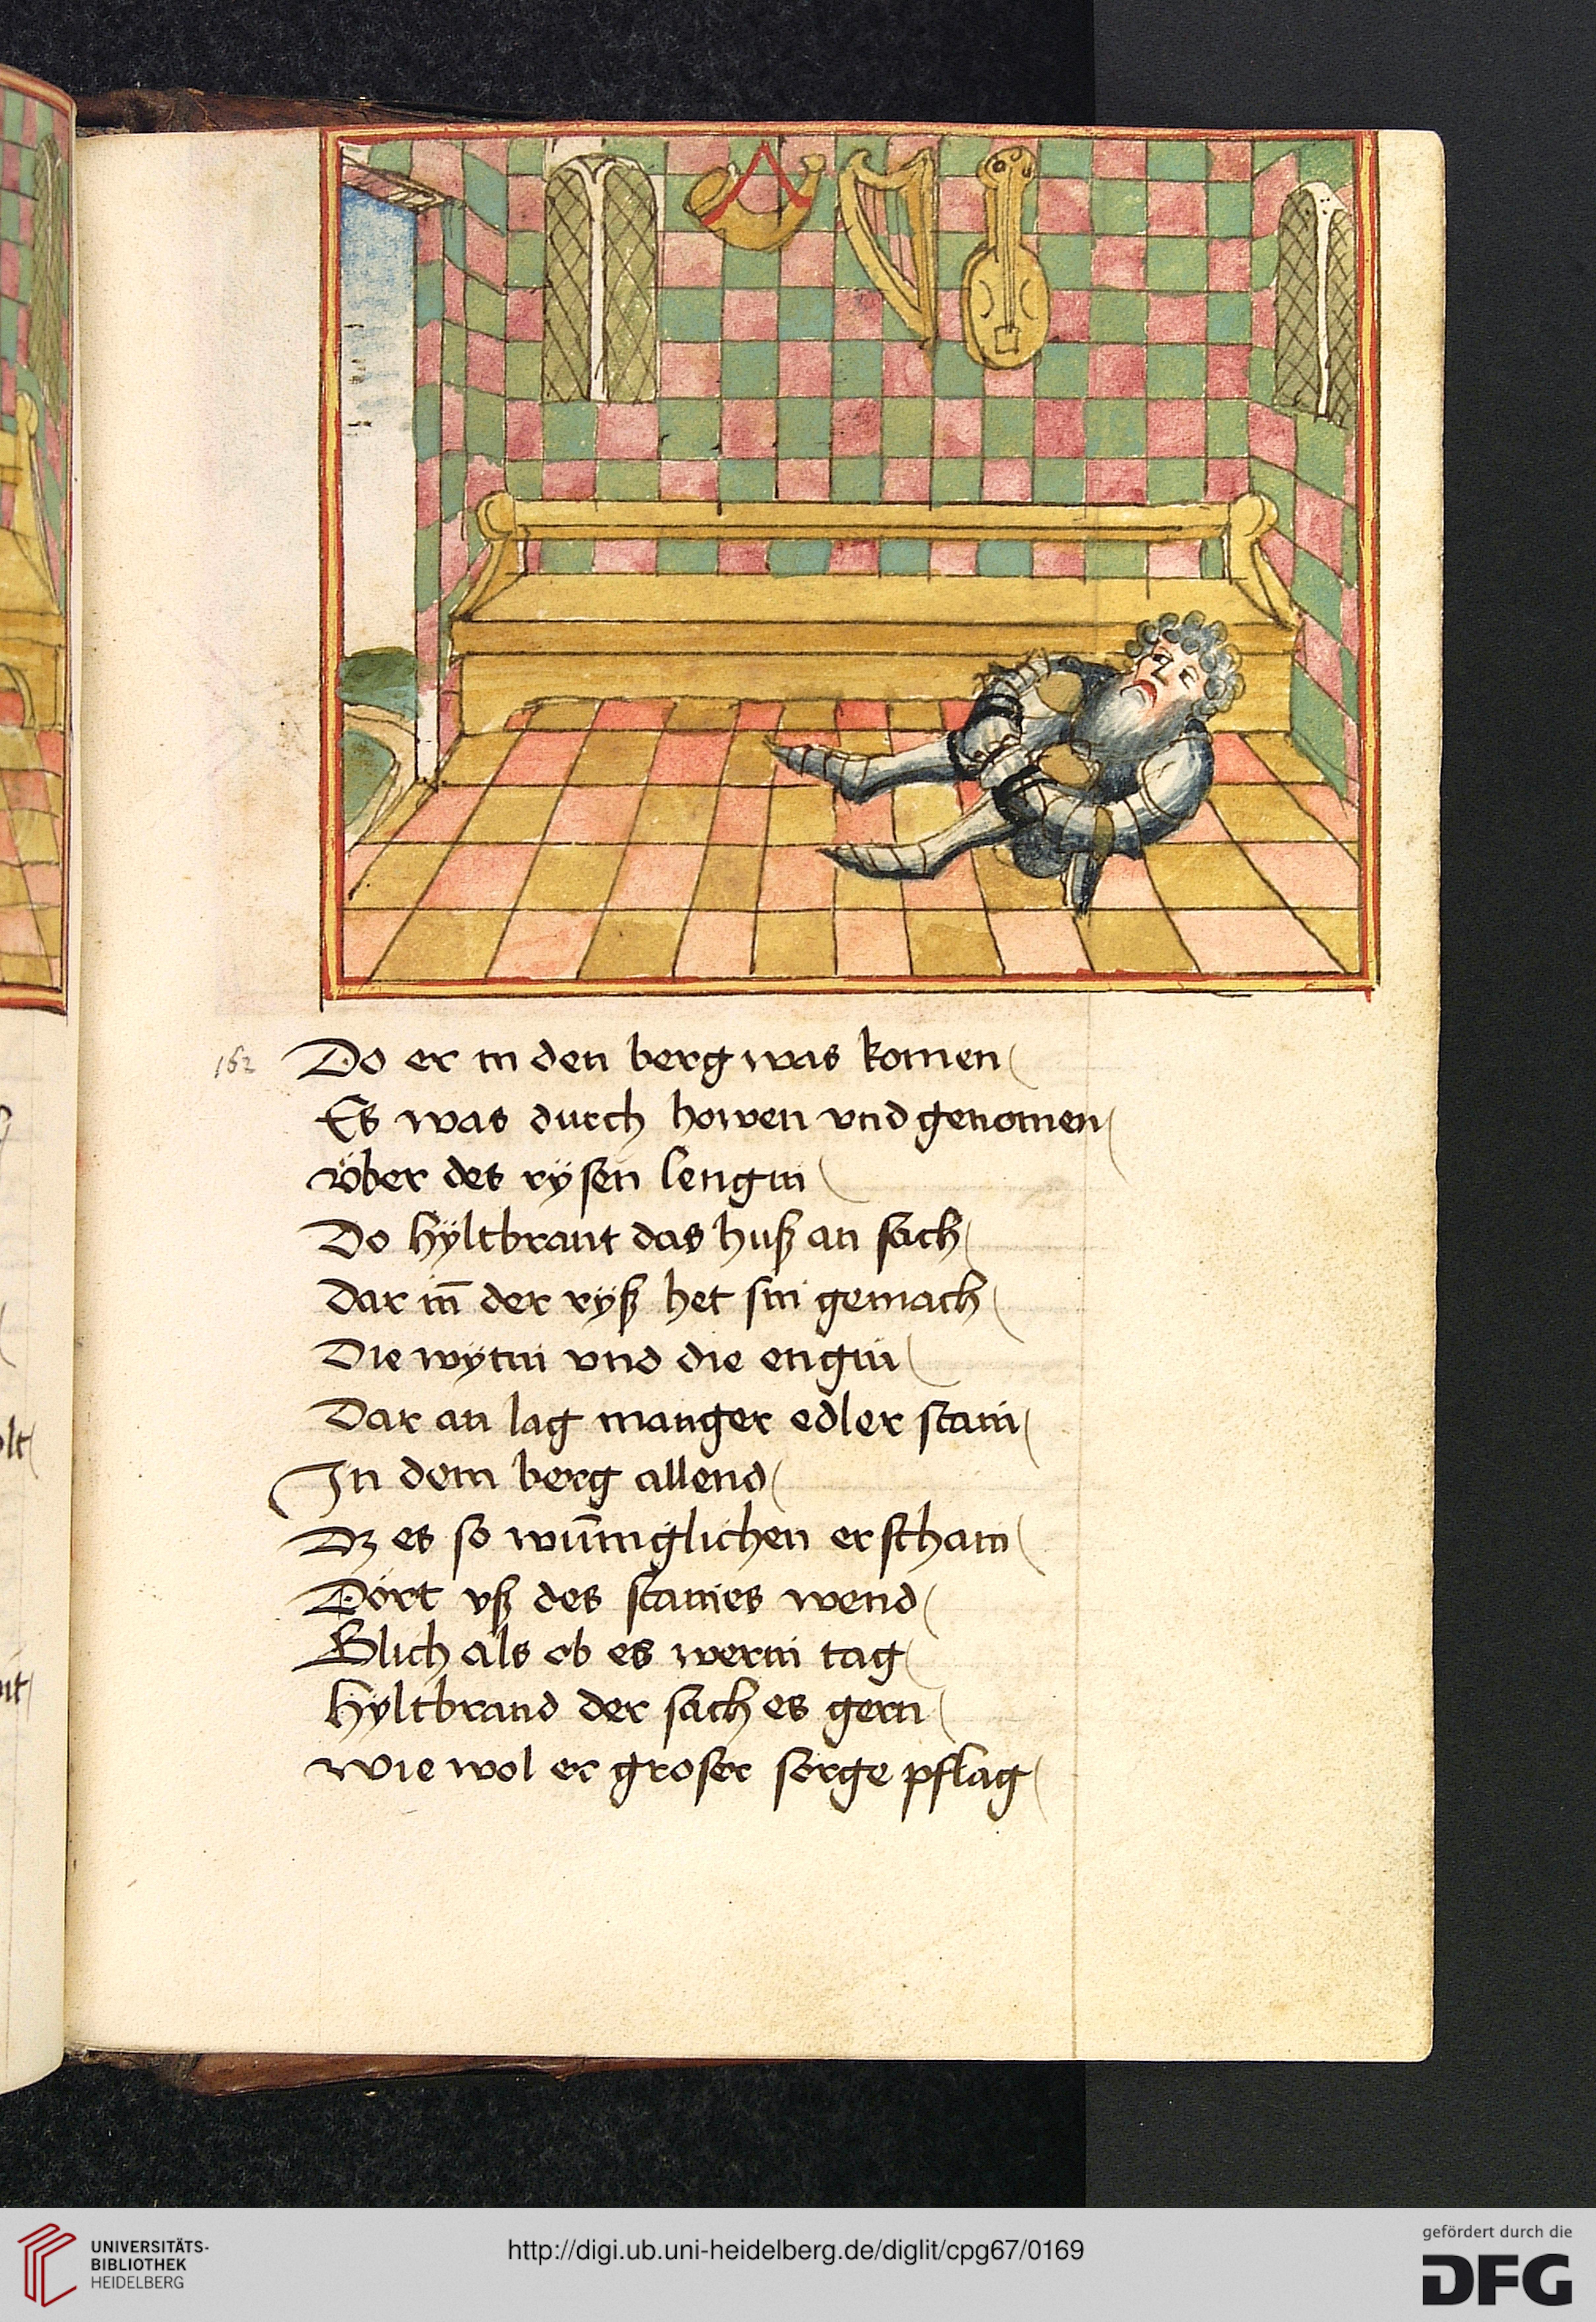 162
Do er in den berg was komen
Es was durch howen vnd genomen
Vͤber des rÿsen lengin
Do hÿltbrant das huß an sach
Dar in̄ der ryß het sin gemach
Die wÿtin vnd die engin
Dar an lag manger edler stain
In dem berg allend
Dz es so wūniglichen erschain
Dort vß des staines wend
Glich als ob es werin tag
Hyltbrand der sach es gern
Wie wol er groser sorge pflag
UNIVERSITÄTS-
BIBLIOTHEK
HEIDELBERG
http://digi.ub.uni-heidelberg.de/diglit/cpg67/0169
gefördert durch die
DFG